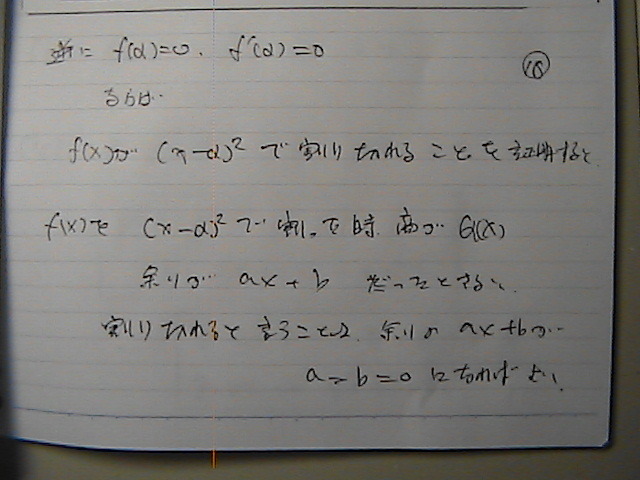 逆に f(α)=0. f'(α)=0
⑱
ならば
f(x)が (x-α)² で 割り切れる ことを 証明すると
f(x)を (x-α)² で 割った時 商が Q(x)
余りが ax+b だったとする。
割り切れると 言うことは. 余りの ax+bが
a=b=0 になればよい.